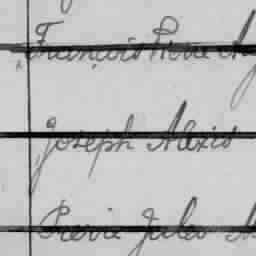 François Pierre
Joseph Alexis
Pierre Jules